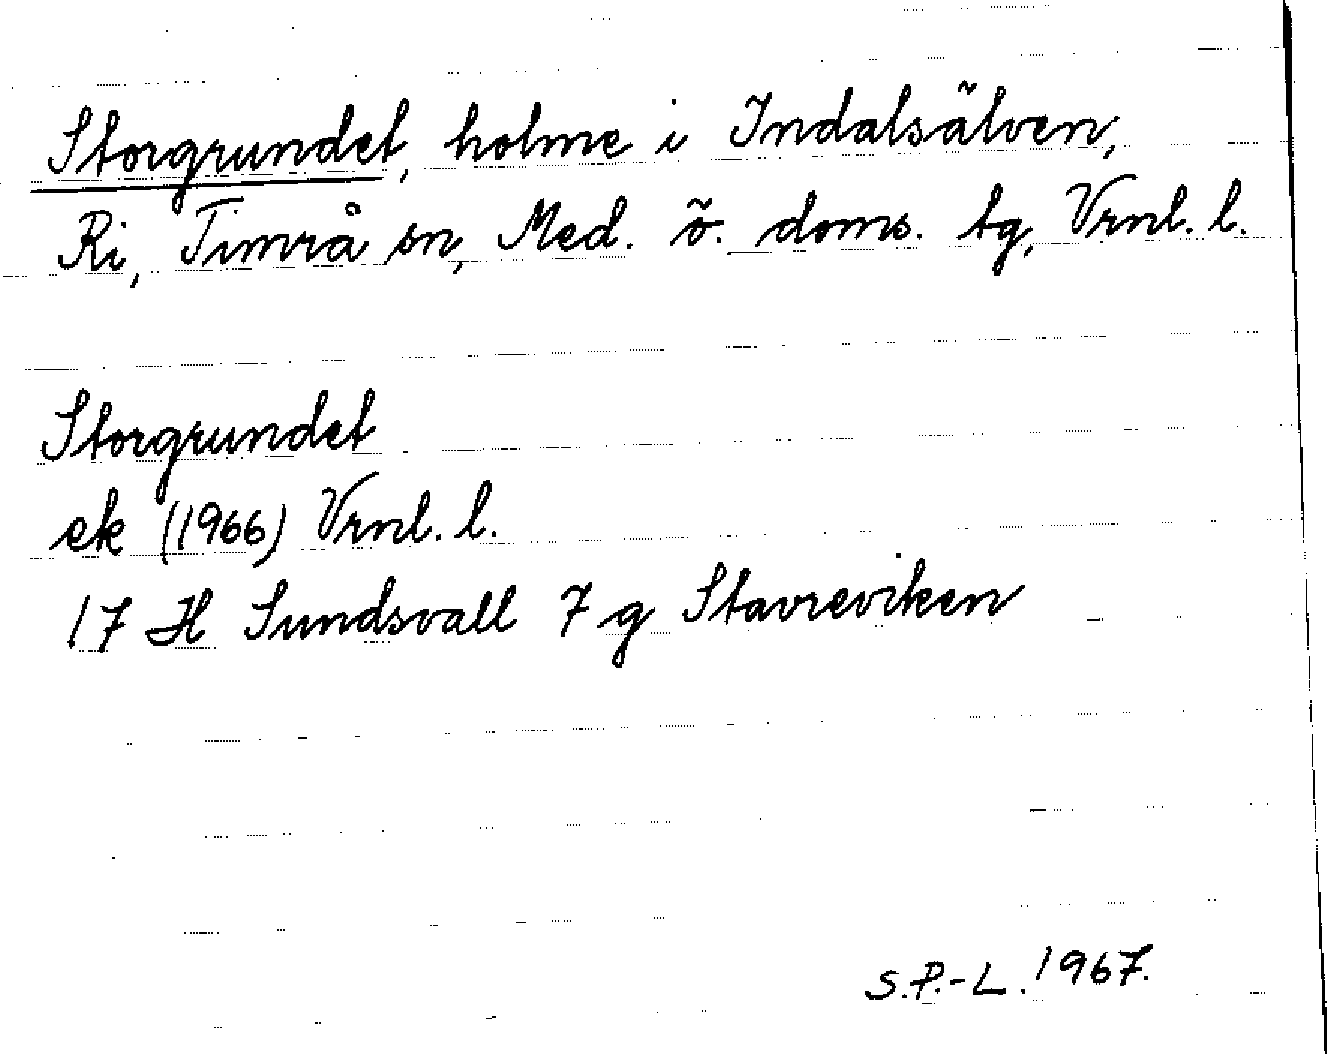 Storgrundet, holme i Indalsälven,
Ri, Timrå sn, Med. ö. doms. tg, Vrnl. l.
Storgrundet
ek (1966) Vrnl. l.
17 H Sundsvall 7 g Stavreviken
S.P.-L. 1967.